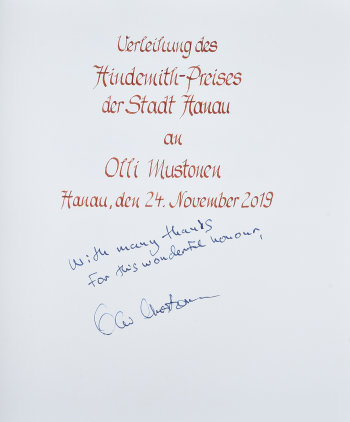 Verleihung des
Hindemith-Preises
der Stadt Hanau
an
Olli Mustonen
Hanau, den 24. November 2019
With many thanks
for this wonderful honour,
Olli Mustonen